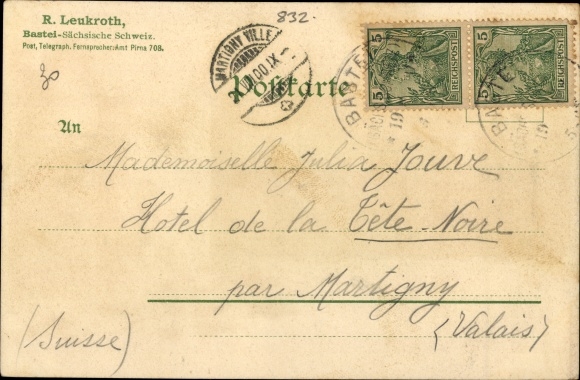 832.
R. Leukroth,
Bastei-Sächsische Schweiz.
Post, Telegraph. Fernsprecher: Amt Pirna 708.
MARTIGNY VILLE
00.IX
5 REICHSPOST 5
5 REICHSPOST 5
BASTEI
BASTEI
Postkarte
An
Mademoiselle Julia Jouve
Hotel de la Tête-Noire
par Martigny
(Valais)
(Suisse)